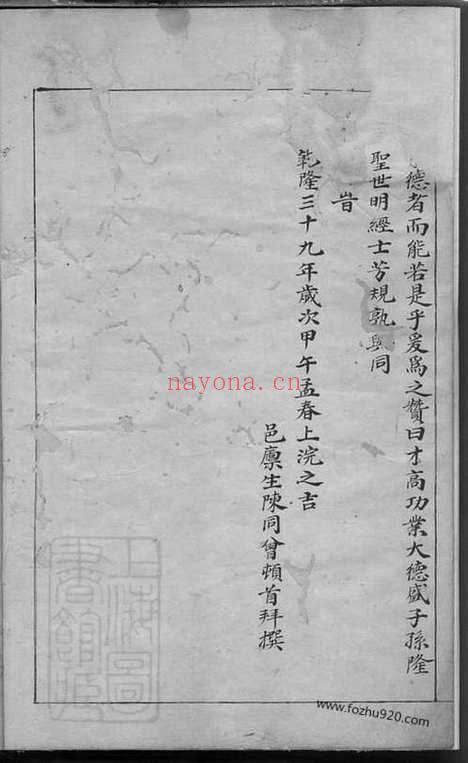 德者而能若是乎爰為之贊曰才高功業大德盛子孫隆
聖世明經士芳規孰與同
旹
乾隆三十九年歲次甲午孟春上浣之吉
邑廩生陳同曾頓首拜撰
上海圖書館藏
nayona.cn
www.fozhu920.com